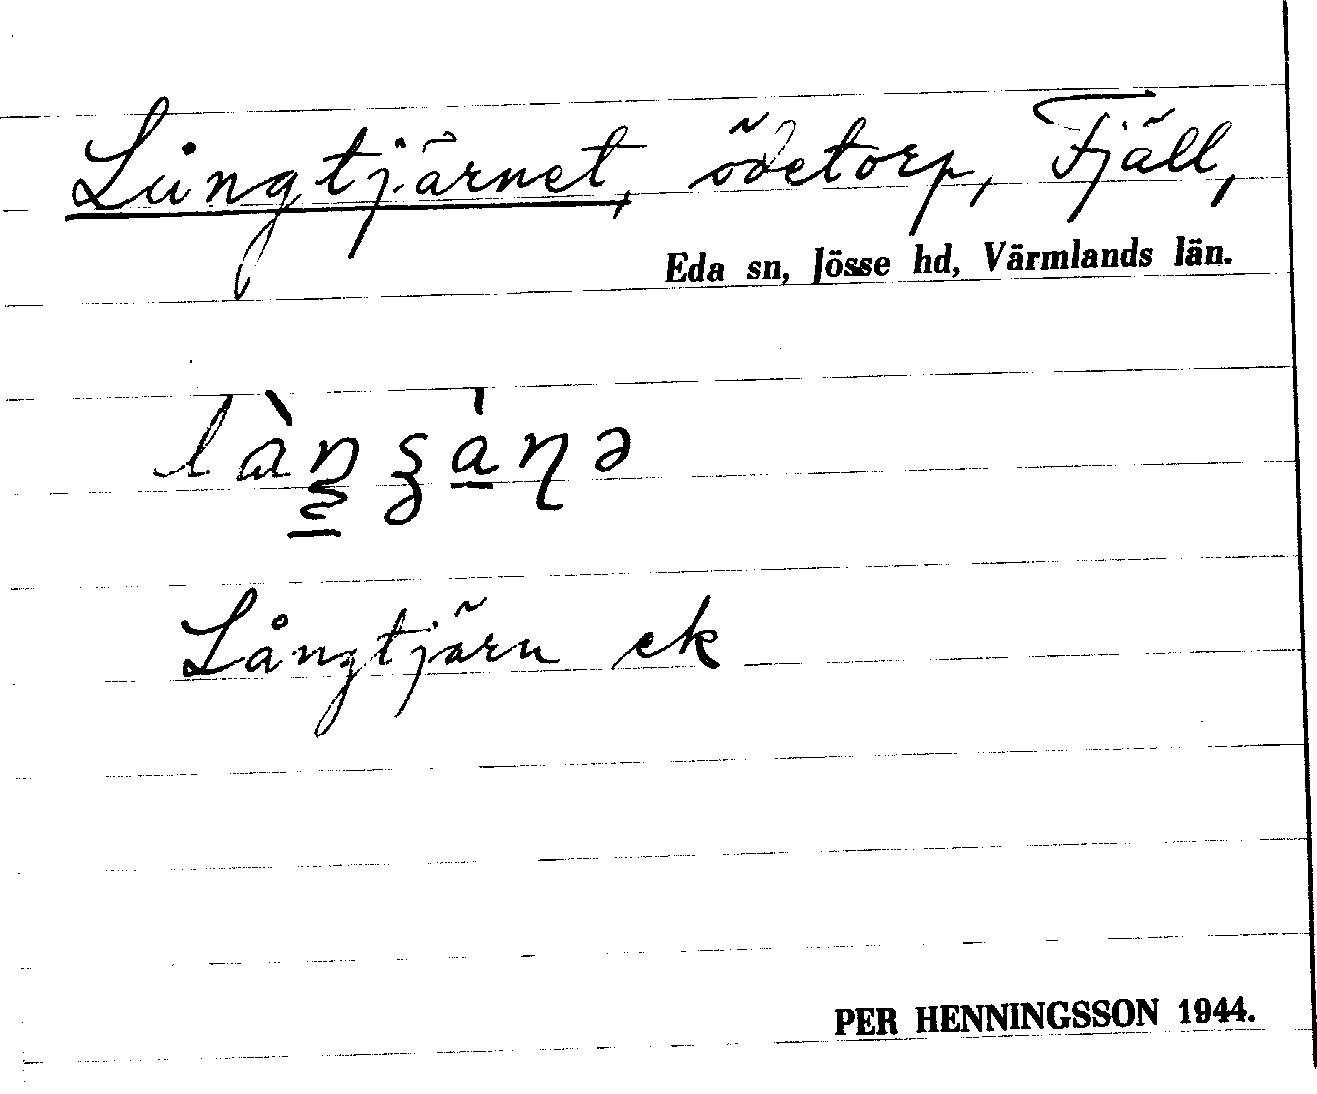 Långtjärnet, ödetorp, Fjäll,
Eda sn, Jösse hd, Värmlands län.
Långtjärn ek
PER HENNINGSSON 1944.